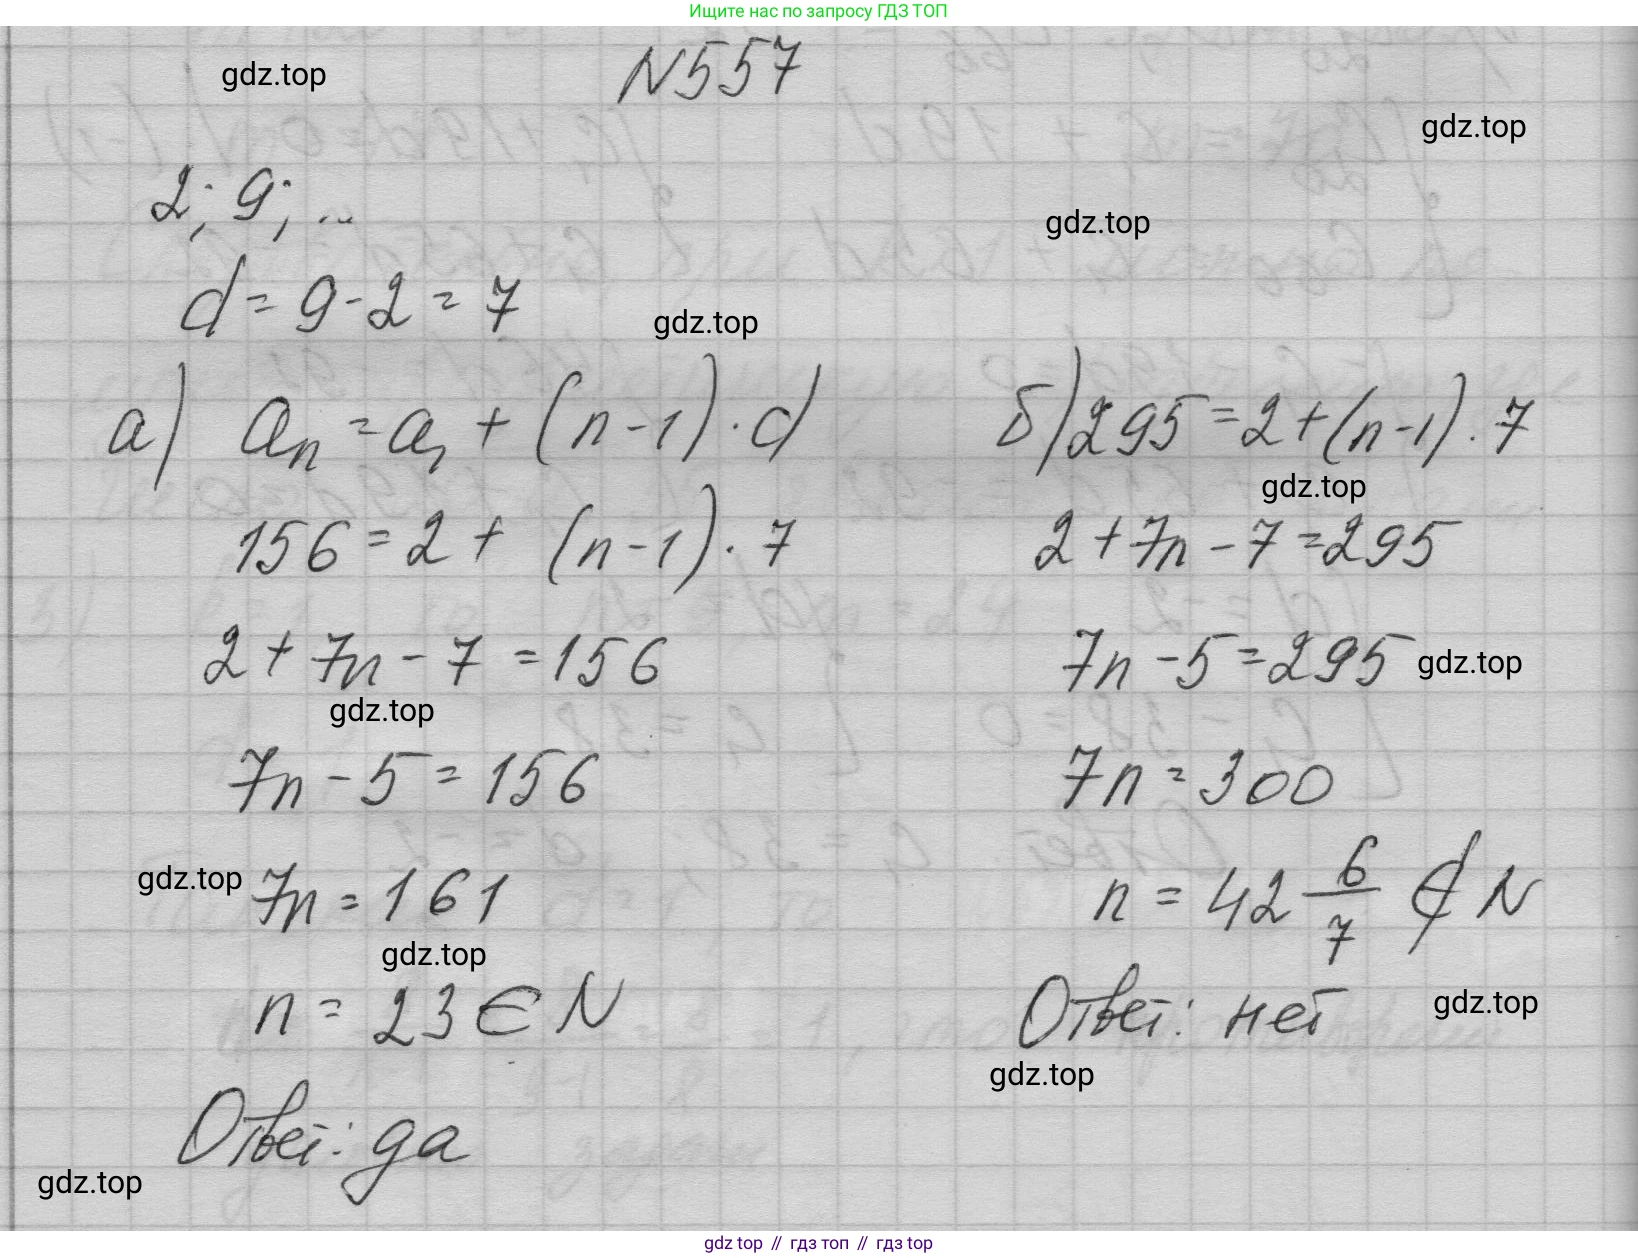 Ищите нас по запросу ГДЗ ТОП
N557
gdz.top
gdz.top
2; 9; ...
gdz.top
d = 9 - 2 = 7
gdz.top
а) aₙ = a₁ + (n-1) · d
156 = 2 + (n-1) · 7
2 + 7n - 7 = 156
gdz.top
7n - 5 = 156
gdz.top
7n = 161
gdz.top
n = 23 ∈ N
Ответ: да
gdz.top
б) 295 = 2 + (n-1) · 7
gdz.top
2 + 7n - 7 = 295
7n - 5 = 295
gdz.top
7n = 300
n = 42 6/7 ∉ N
Ответ: нет
gdz.top
gdz.top
gdz top // гдз топ // гдз top